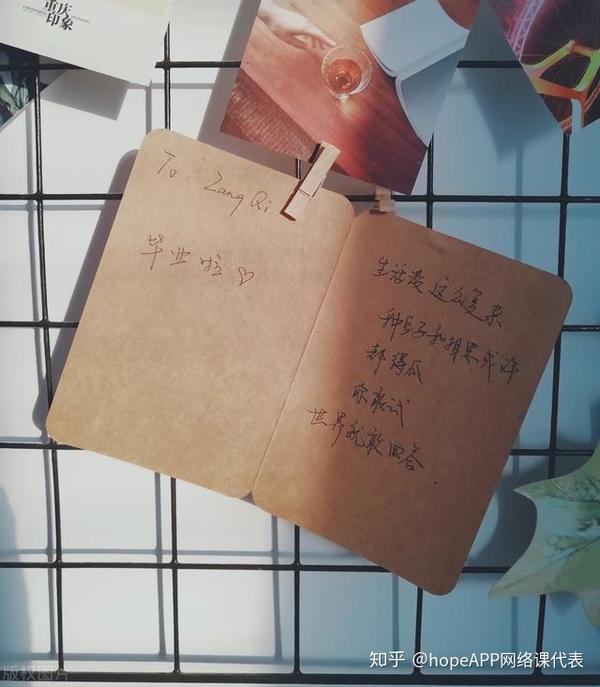 重庆
印象
To: Zang Qi
毕业啦♡
生活没这么复杂
种豆子和相思或许
都得瓜
你敢试
世界就敢回答.
知乎 @hopeAPP网络课代表
版权图片